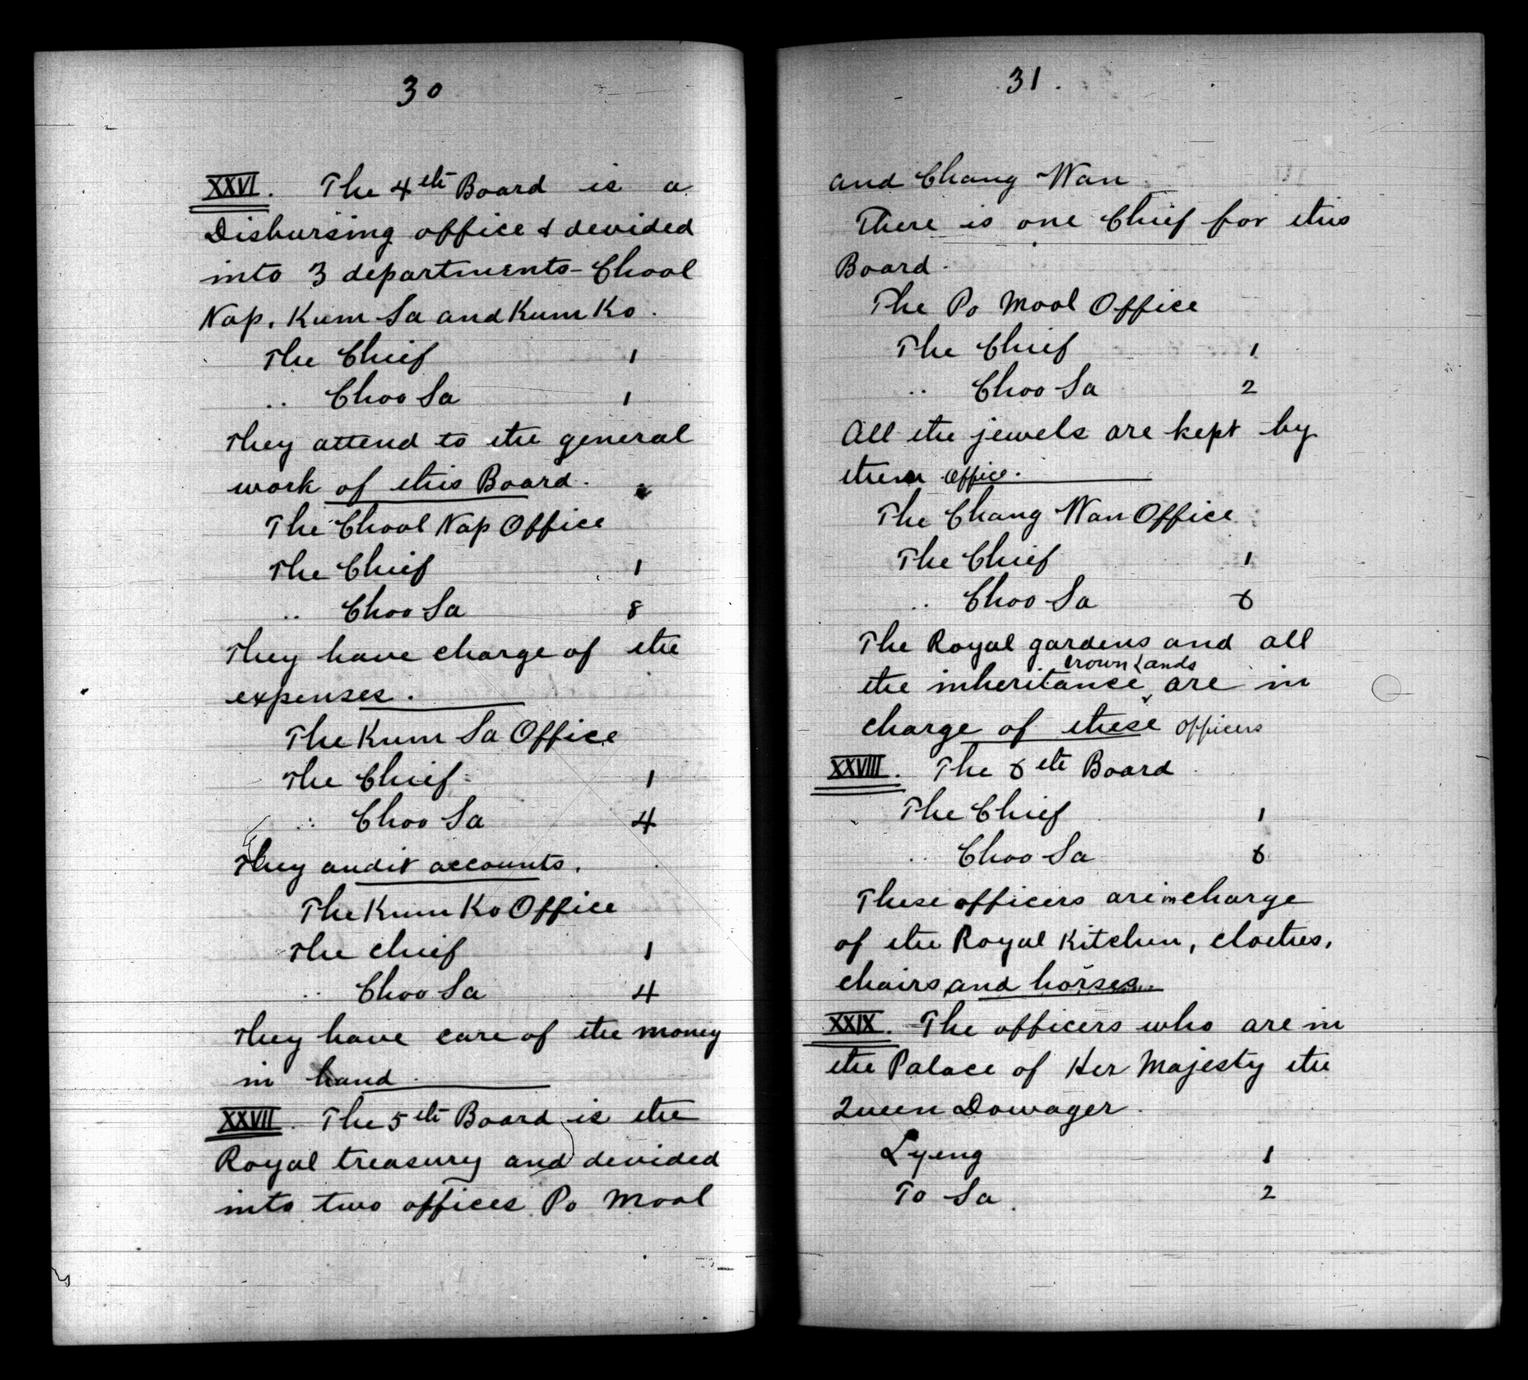 30
XXVI. The 4th Board is a
Disbursing office & devided
into 3 departments - Chool
Nap, Kum Sa and Kum Ko.
The Chief 1
.. Choo Sa 1
They attend to the general
work of this Board.
The Chool Nap Office
The Chief 1
.. Choo Sa 8
They have charge of the
expenses.
The Kum Sa Office
The Chief 1
.. Choo Sa 4
They audit accounts.
The Kum Ko Office
The chief 1
.. Choo Sa 4
They have care of the money
in hand
XXVII. The 5th Board is the
Royal treasury and devided
into two offices Po Mool
31.
and Chang Wan
There is one Chief for this
Board.
The Po Mool Office
The Chief 1
.. Choo Sa 2
All the jewels are kept by
them office.
The Chang Wan Office
The Chief 1
.. Choo Sa 6
The Royal gardens and all
crown lands
the inheritance, are in
charge of these officers
XXVIII. The 6th Board
The Chief 1
.. Choo Sa 6
These officers are in charge
of the Royal Kitchen, clothes,
chairs and horses.
XXIX. The officers who are in
the Palace of Her Majesty the
Queen Dowager.
Lyeng 1
To Sa 2